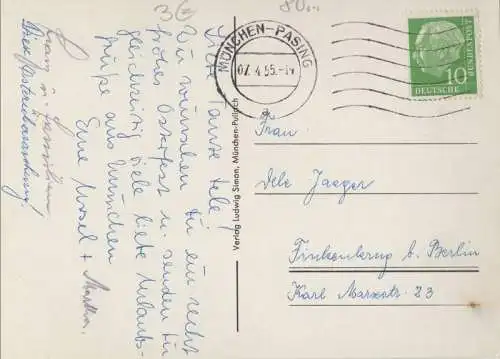 3
80
Liebe Tante Dele!
Wir wünschen Dir ein recht
frohes Osterfest u. senden Dir
gleichzeitig viele liebe Urlaubs-
grüße aus München
Eure Ursel +
Franz u. Familie
Verlag Ludwig Simon, München-Pullach
MÜNCHEN-PASING
07.4.55.-14
10
DEUTSCHE
BUNDESPOST
Frau
Dele Jaeger
Finkenkrug b. Berlin
Karl Marxstr. 23